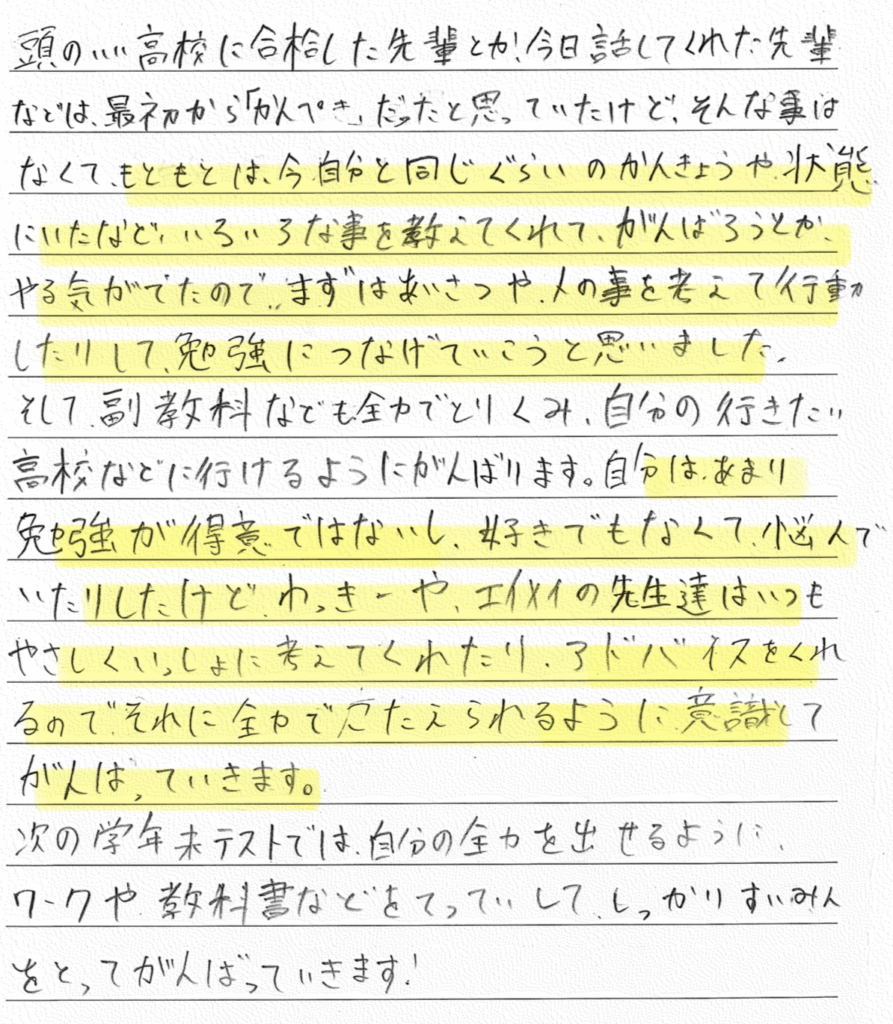 頭のいい高校に合格した先輩とか!今日話してくれた先輩
などは、最初から「かんぺき」だったと思っていたけど、そんな事は
なくて、もともとは、今自分と同じぐらいのかんきょうや、状態
にいたなど、いろいろな事を教えてくれて、がんばろうとか、
やる気がでたので、まずはあいさつや、人の事を考えて行動
したりして、勉強につなげていこうと思いました。
そして、副教科なども全力でとりくみ、自分の行きたい
高校などに行けるようにがんばります。自分は、あまり
勉強が得意ではないし、好きでもなくて、悩んで
いたりしたけど、わっきーや、エイメイの先生達はいつも
やさしくいっしょに考えてくれたり、アドバイスをくれ
るのでそれに全力で応たえられるように意識して
がんばっていきます。
次の学年末テストでは、自分の全力を出せるように、
ワークや、教科書などをてっていして、しっかりすいみん
をとってがんばっていきます!